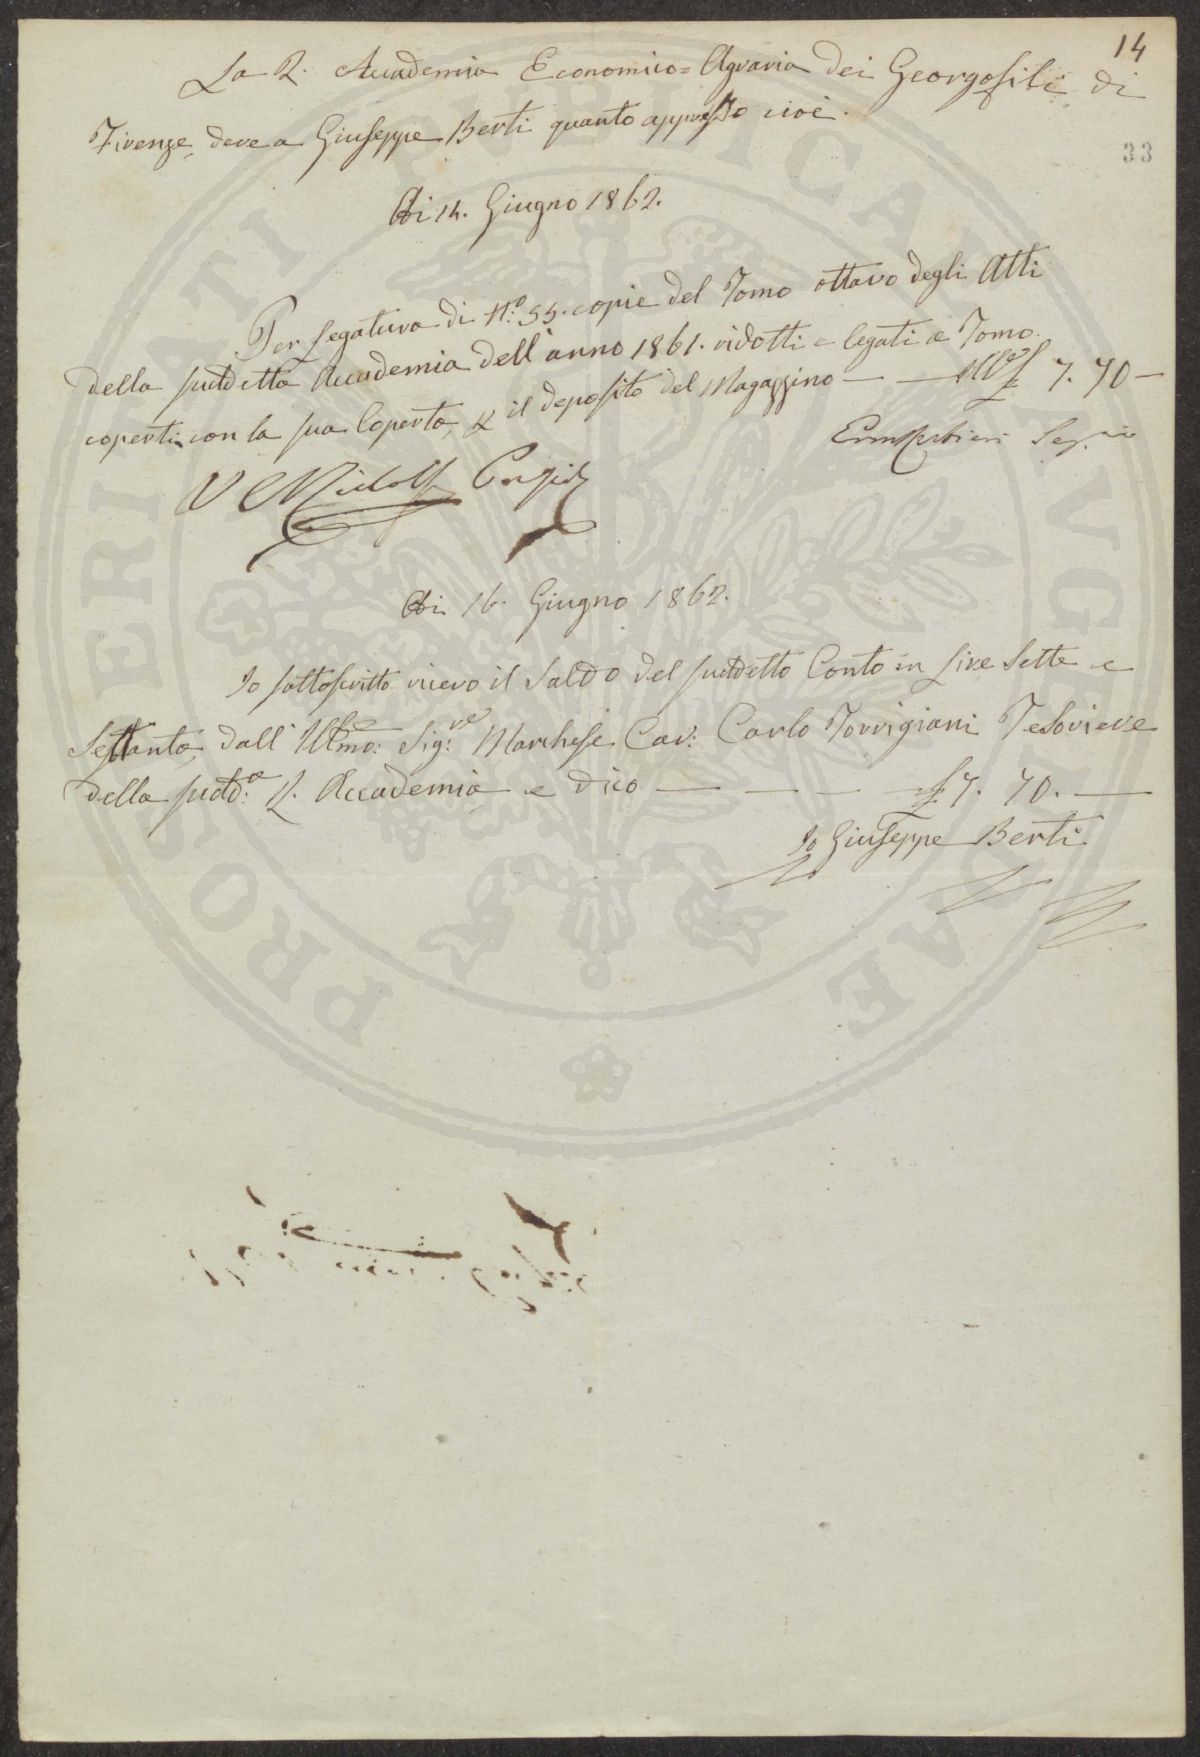 14
La R. Accademia Economico=Agraria dei Georgofili di
Firenze, deve a Giuseppe Berti quanto appresso cioè.
33
Adi 14. Giugno 1862.
Per legatura di N.º 55. copie del Tomo ottavo degli Atti
della suddetta Accademia dell'anno 1861. ridotti e legati a Tomo
coperti con la sua Coperta, il deposito del Magazzino — £ 7. 70 —
V C Ridolfi Presid
Adi 16. Giugno 1862.
Io sottoscritto ricevo il Saldo del suddetto Conto in Lire Sette e
Settanta, dall'Illmo: Sig:re Marchese Cav: Carlo Torrigiani Tesoriere
della sudd:a R. Accademia e dico — — — £ 7. 70. —
Io Giuseppe Berti
PROSPERITATI PVBLICAE AVGENDAE